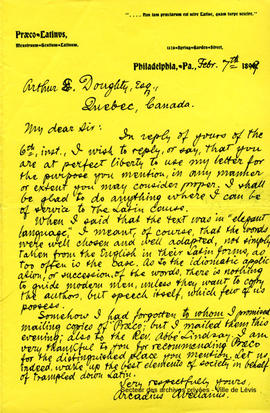 "....Non tam praeclarum est scire Latine, quam turpe nescire."
PRÆCO·LATINUS,
Menstruum·Gentium·Latinum.
1139·Spring·Garden·Street,
Philadelphia,·Pa., Febr. 7th 1899
Arthur G. Doughty, Esq.,
Quebec, Canada.
My dear Sir:
In reply of yours of the
6th, inst., I wish to reply, or say, that you
are at perfect liberty to use my letter for
the purpose you mention, in any manner
or extent you may consider proper. I shall
be glad to do anything where I can be
of service to the Latin Cause.
When I said that the text was in "elegant
language," I meant, of course, that the words
were well chosen and well adapted, not simply
taken from the English in their Latin forms, as
too often is the case. As to the idiomatic applic-
ation, or succession, of the words, there is nothing
to guide modern men, unless they want to copy
the authors, but speech itself, which few of us
possess.
Somehow I had forgotten to whom I promised
mailing copies of Præco; but I mailed them this
evening; also to the Rev. Abbé Lindsay. I am
very thankful to you for recommending Præco
for the distinguished place you mention. Let us,
indeed, wake up the best elements of society in behalf
of trampled down Latin.
Very respectfully, yours,
Arcadius Avellanus.
Secteur des archives privées - Ville de Lévis